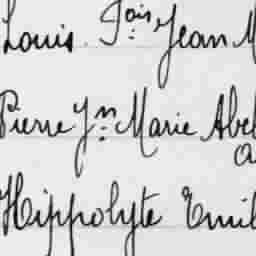 Louis. Fois Jean M
Pierre Jn Marie Abel
a
Hippolyte Emil